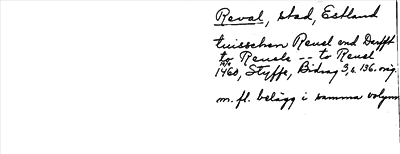 Reval, stad, Estland
tuisschen Reuel end Derfft
to Reuele -- to Reuel
1460, Styffe, Bidrag 3, s. 136. orig.
m. fl. belägg i samma volym